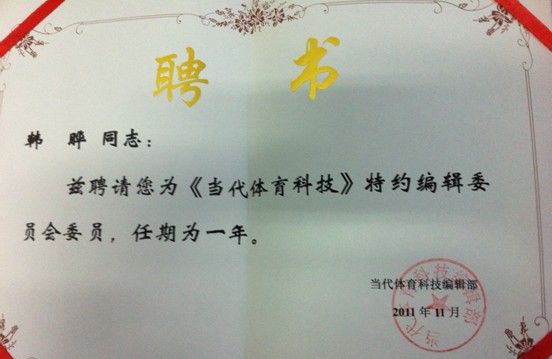 聘 书
韩 晔 同志：
兹聘请您为《当代体育科技》特约编辑委
员会委员，任期为一年。
当代体育科技编辑部
2011 年 11 月
当代体育科技编辑部